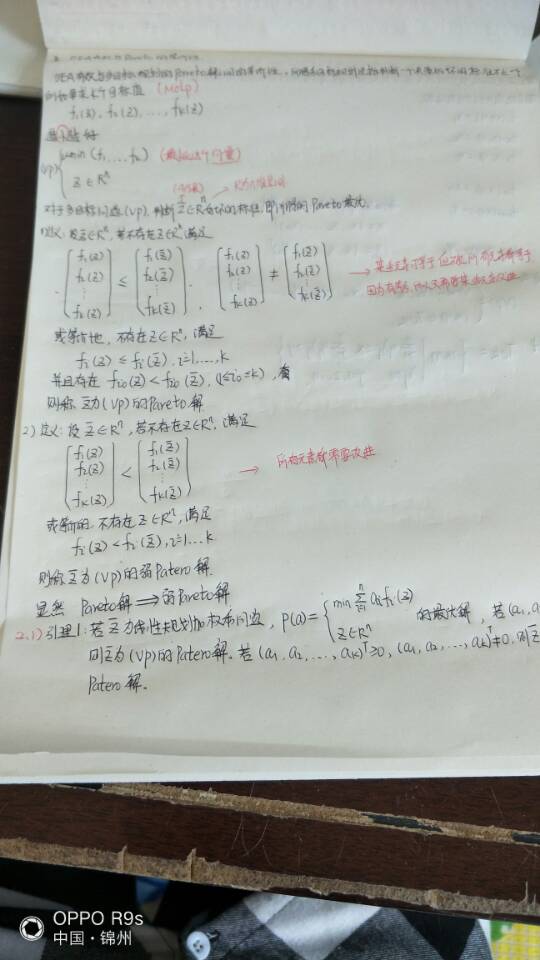 的标准是K个目标值 (MOLP)
f₁(z), f₂(z), ..., fₖ(z)
(VP) { min (f₁, ..., fₖ)
z∈Rⁿ
对于多目标问题(VP), 判断 z̄∈Rⁿ 好坏的标准, 即所谓的Pareto最优.
定义: 设z̄∈Rⁿ, 若不存在z∈Rⁿ满足
[f₁(z) f₂(z) ⋮ fₖ(z)] ≤ [f₁(z̄) f₂(z̄) ⋮ fₖ(z̄)], [f₁(z) f₂(z) ⋮ fₖ(z)] ≠ [f₁(z̄) f₂(z̄) ⋮ fₖ(z̄)]
或等价地, 不存在z∈Rⁿ, 满足
fᵢ(z) ≤ fᵢ(z̄), i=1,...,k
并且存在 fᵢ₀(z) < fᵢ₀(z̄), (1≤i₀≤k),
则称z̄为(VP)的Pareto解
2) 定义: 设z̄∈Rⁿ, 若不存在z∈Rⁿ, 满足
[f₁(z) f₂(z) ⋮ fₖ(z)] < [f₁(z̄) f₂(z̄) ⋮ fₖ(z̄)] → 所有元素都需要改进
或等价的, 不存在z∈Rⁿ, 满足
fᵢ(z) < fᵢ(z̄), i=1...k
则称z̄为(VP)的弱Patero解.
显然 Pareto解 ⟹ 弱Pareto解
2.1) 引理1: 若z̄为线性规划加权和问题, P(a) = { min Σⁿᵢ₌₁ aᵢfᵢ(z) 的最优解, 若(a₁, a
z∈Rⁿ
则z̄为(VP)的Patero解. 若(a₁, a₂, ..., aₖ)ᵀ≥0, (a₁, a₂, ..., aₖ)ᵀ≠0, 则z̄
Patero解.
OPPO R9s
中国·锦州